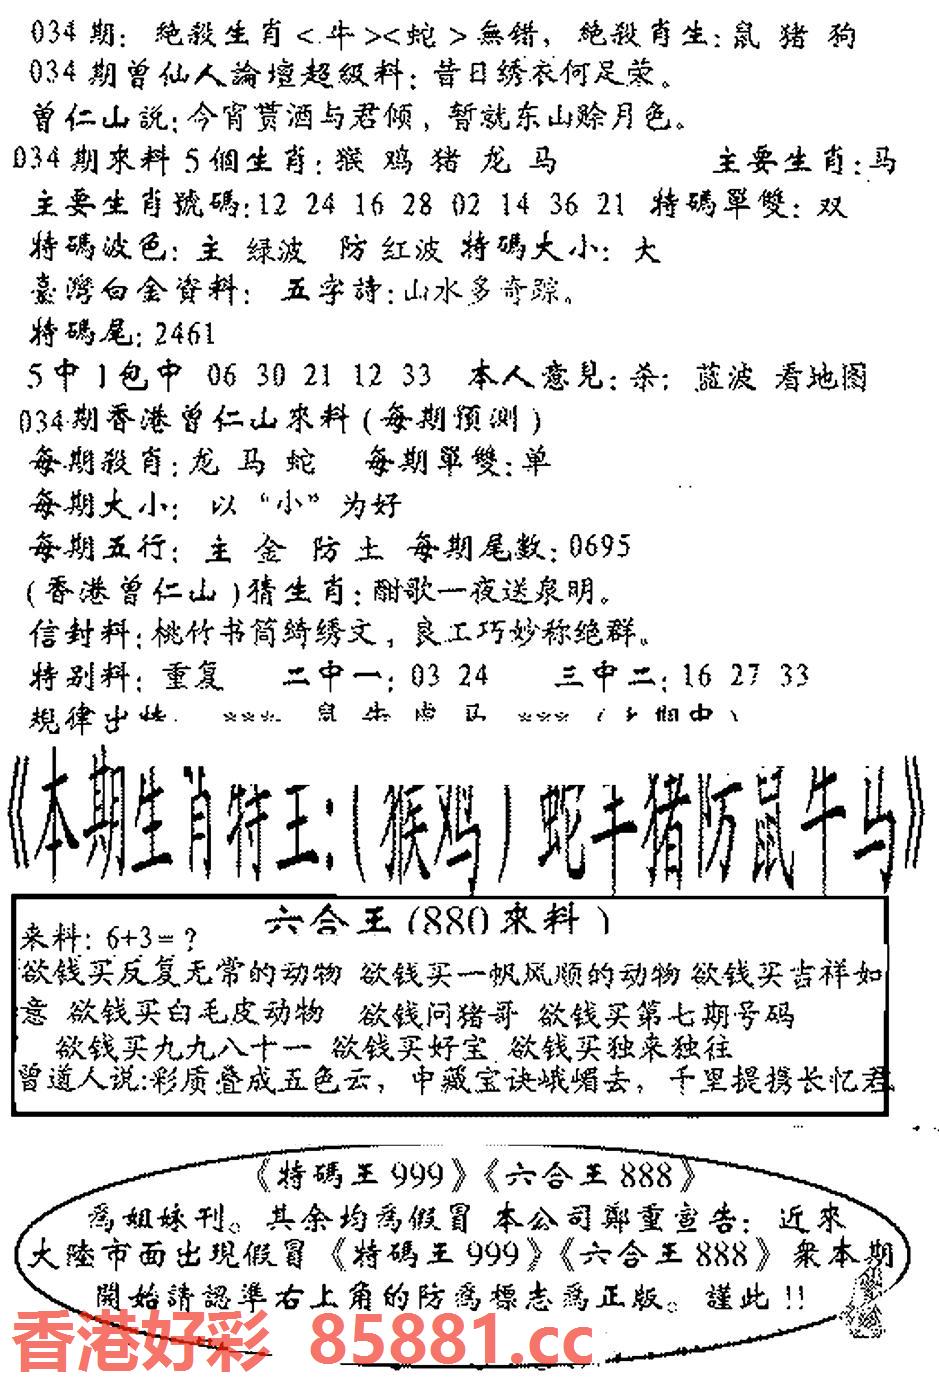 034期: 絶殺生肖<牛><蛇>無錯, 絶殺肖生: 鼠 猪 狗
034期曾仙人論壇超級料: 昔日绣衣何足荣。
曾仁山説: 今宵贳酒与君倾, 暂就东山赊月色。
034期來料 5個生肖: 猴 鸡 猪 龙 马 主要生肖: 马
主要生肖號碼: 12 24 16 28 02 14 36 21 特碼單雙: 双
特碼波色: 主 绿波 防 红波 特碼大小: 大
臺灣白金資料: 五字詩: 山水多奇踪。
特碼尾: 2461
5中1包中 06 30 21 12 33 本人意見: 杀: 蓝波 看地图
034期香港曾仁山來料(每期預測)
每期殺肖: 龙 马 蛇 每期單雙: 单
每期大小: 以“小”为好
每期五行: 主 金 防 土 每期尾数: 0695
(香港曾仁山)猜生肖: 酣歌一夜送泉明。
信封料: 桃竹书筒绮绣文, 良工巧妙称绝群。
特别料: 重复 二中一: 03 24 三中二: 16 27 33
規律出特: *** 鼠 牛 虎 马 ***
《本期生肖特王:(猴鸡)蛇羊猪防鼠牛马》
六合王(880來料)
来料: 6+3=?
欲钱买反复无常的动物 欲钱买一帆风顺的动物 欲钱买吉祥如
意 欲钱买白毛皮动物 欲钱问猪哥 欲钱买第七期号码
欲钱买九九八十一 欲钱买好宝 欲钱买独来独往
曾道人说: 彩质叠成五色云, 中藏宝诀峨嵋去, 千里提携长忆君
《特碼王999》《六合王888》
爲姐妹刊。其余均爲假冒 本公司鄭重宣告: 近來
大陸市面出現假冒《特碼王999》《六合王888》衆本期
開始請認準右上角的防爲標志爲正版。謹此!!
香港好彩 85881.cc